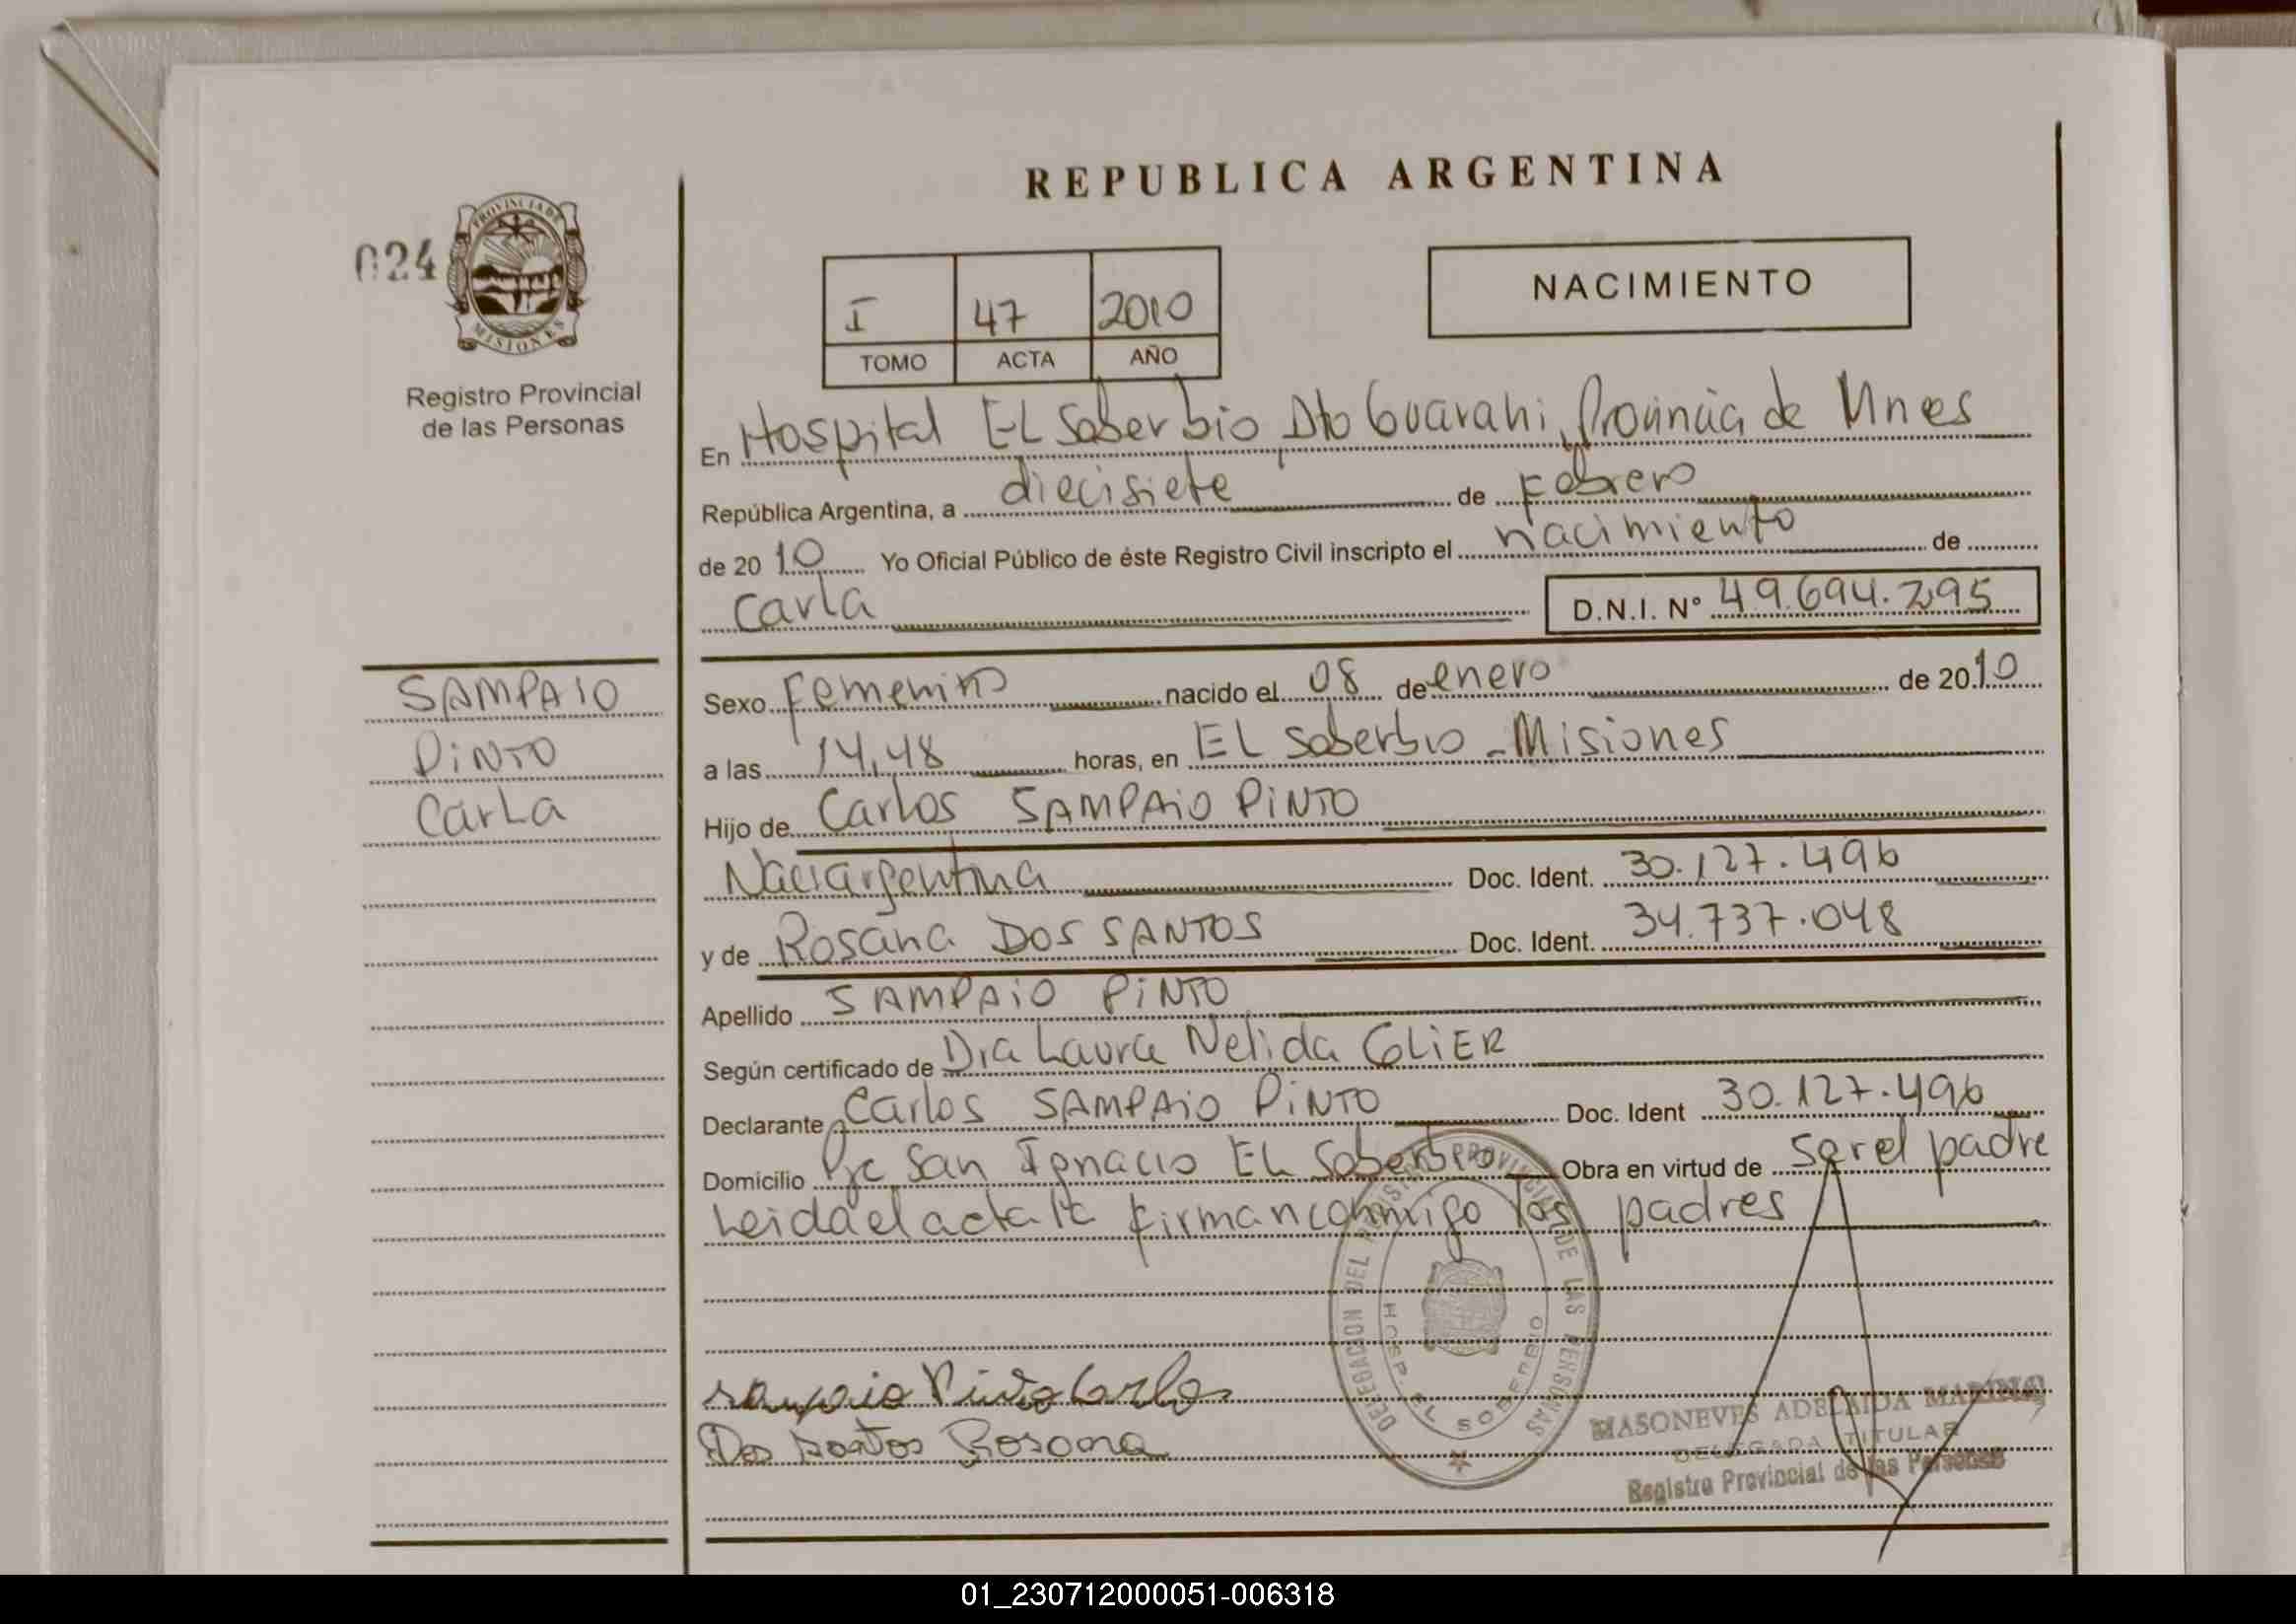 REPUBLICA ARGENTINA
024
PROVINCIA DE
MISIONES
Registro Provincial
de las Personas
I 47 2010
TOMO ACTA AÑO
NACIMIENTO
En Hospital EL Soberbio Dto Guarani, Provincia de Mnes
República Argentina, a diecisiete de Febrero
de 2010 Yo Oficial Público de éste Registro Civil inscripto el nacimiento de
Carla D.N.I. Nº 49.694.295
SAMPAIO
PINTO
CarLa
Sexo Femenino nacido el 08 de enero de 2010
a las 14,48 horas, en EL Soberbio - Misiones
Hijo de Carlos SAMPAiO PiNTO
Nac: argentina Doc. Ident. 30.127.496
y de Rosana DOS SANTOS Doc. Ident. 34.737.048
Apellido SAMPAiO PiNTO
Según certificado de Dra Laura Nelida GLiER
Declarante Carlos SAMPAiO PiNTO Doc. Ident 30.127.496
Domicilio Pje San Ignacio EL Soberbio Obra en virtud de ser el padre
Leida el acta la firman conmigo los padres
DELEGACION DEL REGISTRO PROVINCIAL DE LAS PERSONAS
HOSP. EL SOBERBIO
Sampaio Pinto Carlos
Dos Santos Rosana
MASONEVES ADELAIDA MARINA
DELEGADA TITULAR
Registro Provincial de las Personas
01_230712000051-006318